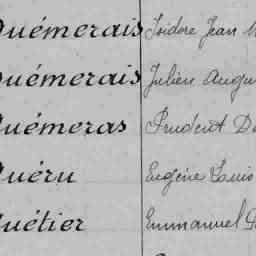 Quémerais Isidore Jean
Quémerais Julien
Quémeras Prudent
Quéru Eugène Louis
Quétier Emmanuel